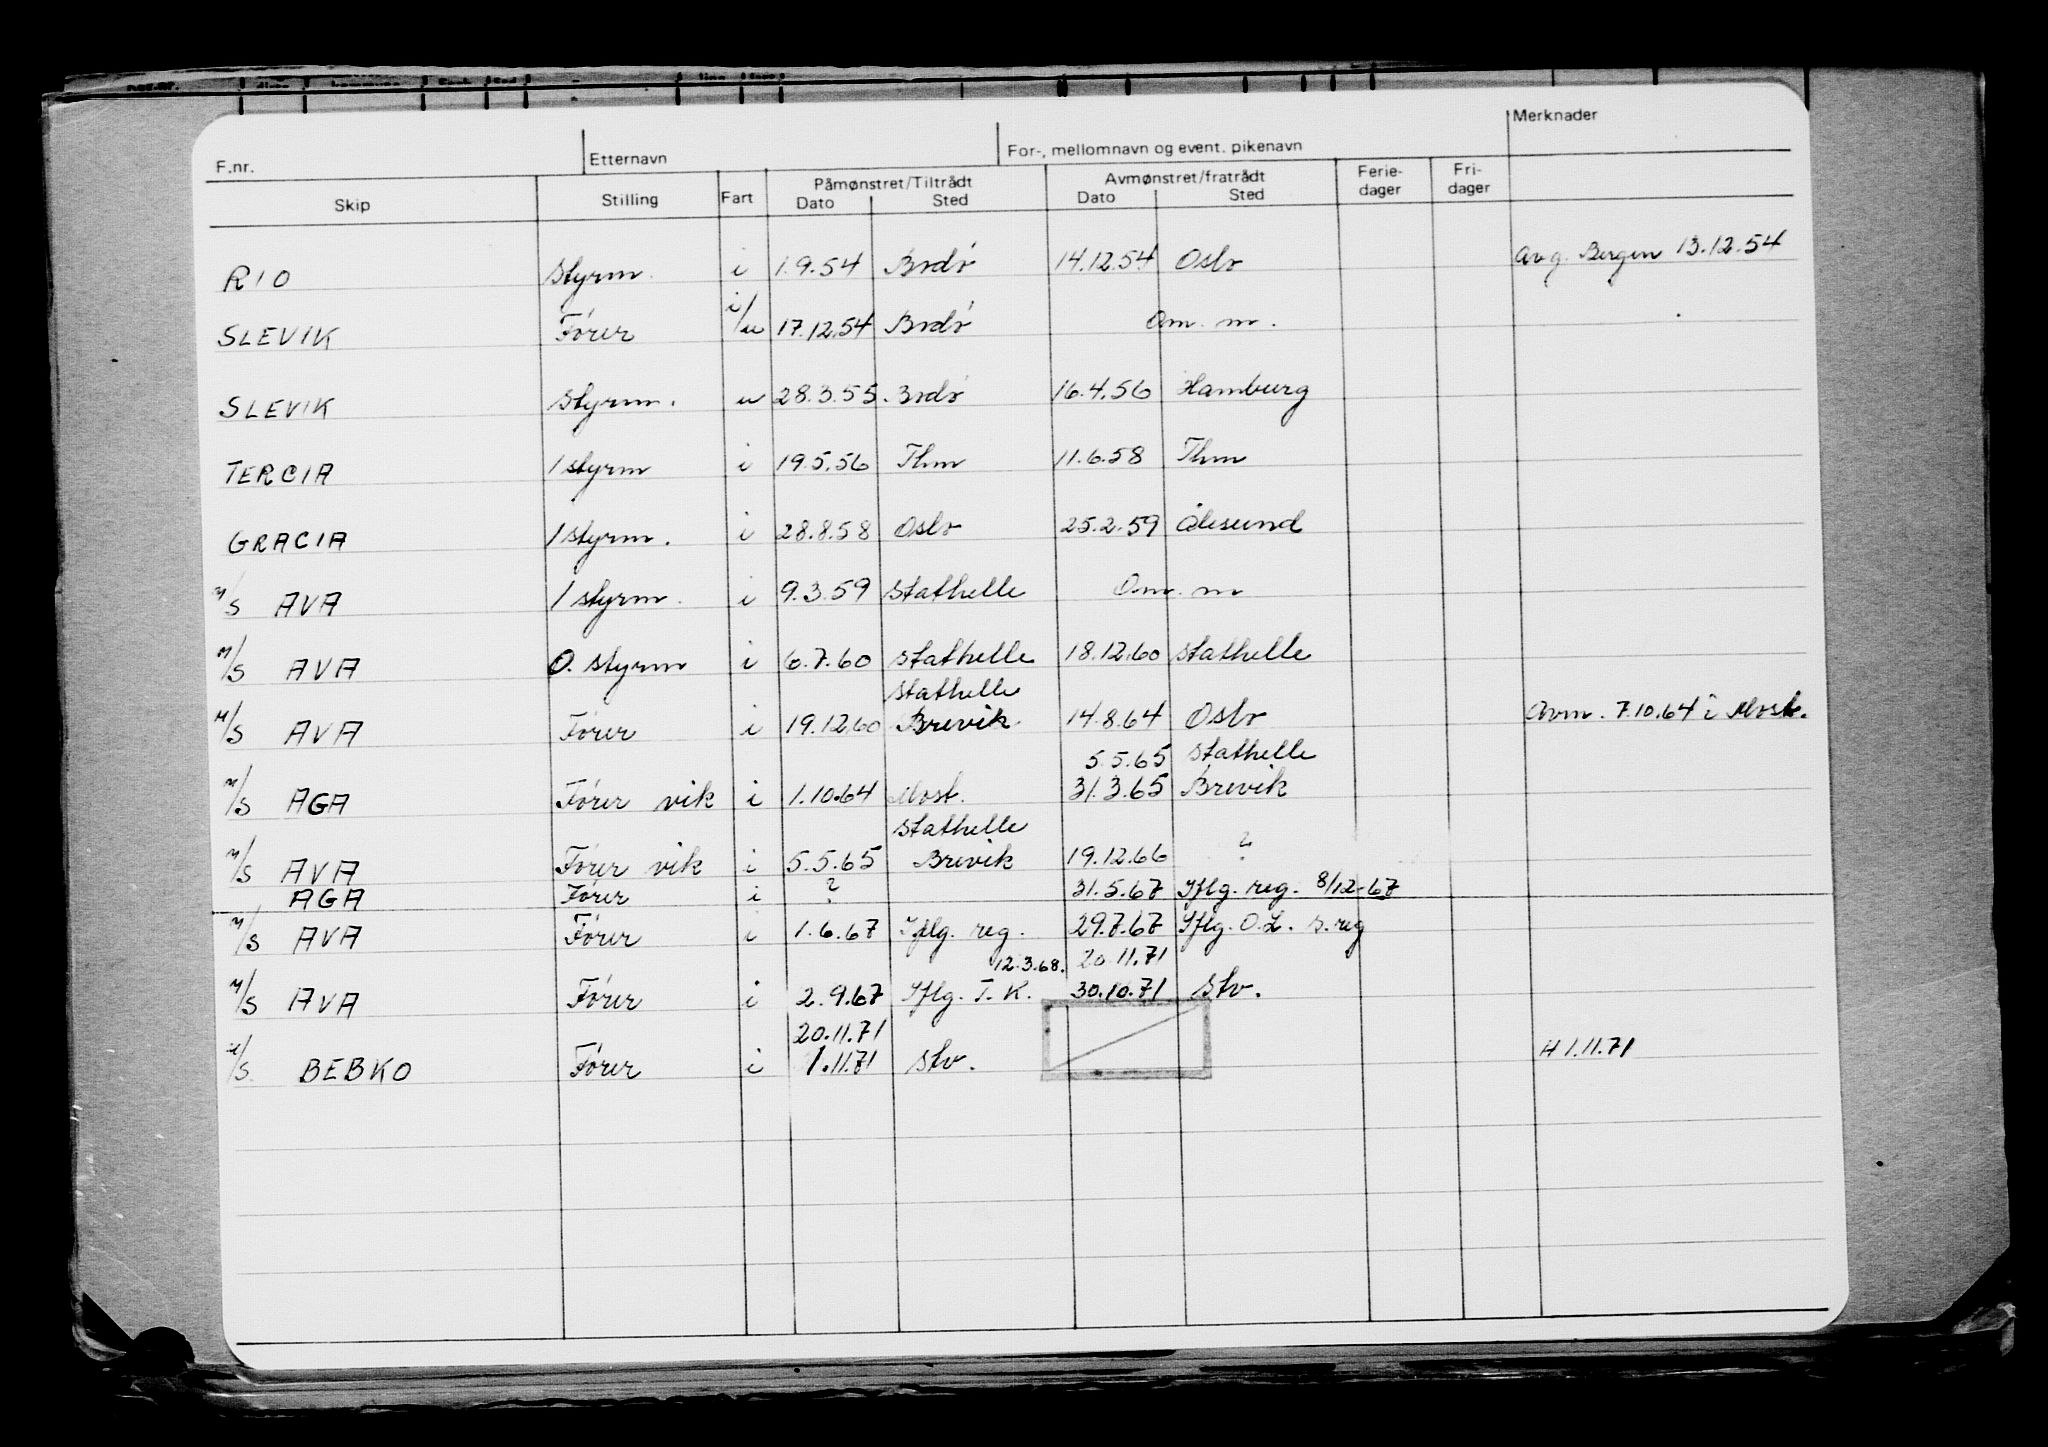 Merknader
F.nr. Etternavn For-, mellomnavn og event. pikenavn
Skip Stilling Fart Påmønstret/Tiltrådt Avmønstret/fratrådt Ferie-dager Fri-dager
Dato Sted Dato Sted
RIO styrm. i 1.9.54 Bodø 14.12.54 Oslo Avg. Bergen 13.12.54
SLEVIK Fører i/u 17.12.54 Bodø Om. m.
SLEVIK styrm. u 28.3.55. Bodø 16.4.56 Hamburg
TERCIA 1 styrm i 19.5.56 Thm 11.6.58 Thm
GRACIA 1 styrm. i 28.8.58 Oslo 25.2.59 Ålesund
M/S AVA 1 styrm. i 9.3.59 Stathelle Om. m
M/S AVA O. styrm i 6.7.60 Stathelle 18.12.60 Stathelle
Stathelle
M/S AVA Fører i 19.12.60 Brevik 14.8.64 Oslo Avm. 7.10.64 i Mosk.
5.5.65 Stathelle
M/S AGA Fører vik i 1.10.64 Mosk. 31.3.65 Brevik
Stathelle
M/S AVA Fører vik i 5.5.65 Brevik 19.12.66 ?
AGA Fører i ? 31.5.67 Iflg. reg. 8/12-67
M/S AVA Fører i 1.6.67 Iflg. reg. 29.7.67 Iflg. O.L. s. reg
12.3.68. 20.11.71
M/S AVA Fører i 2.9.67 Iflg. T.K. 30.10.71 Stv.
20.11.71
M/S. BEBKO Fører i 1.11.71 Stv. H 1.11.71